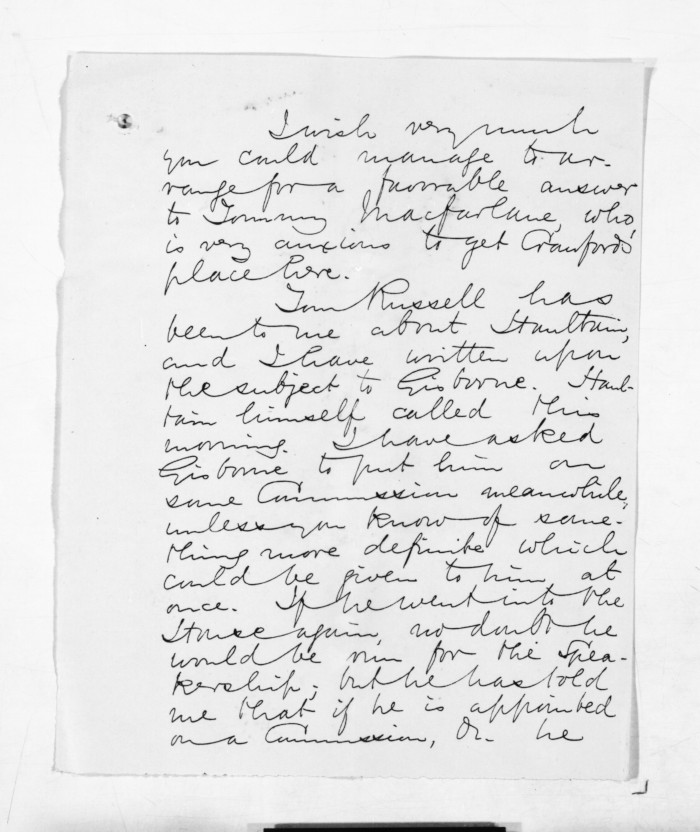 I wish very much
you could manage to ar-
range for a favorable answer
to Tommy Macfarlane, who
is very anxious to get Crawford's
place here.
Tom Russell has
been to me about Haultain,
and I have written upon
the subject to Gisborne. Haul-
tain himself called this
morning. I have asked
Gisborne to put him on
some Commission meanwhile,
unless you know of some-
thing more definite which
could be given to him at
once. If he went into the
House again, no doubt he
would be run for the Spea-
kership; but he has told
me that if he is appointed
on a Commission, &c. he